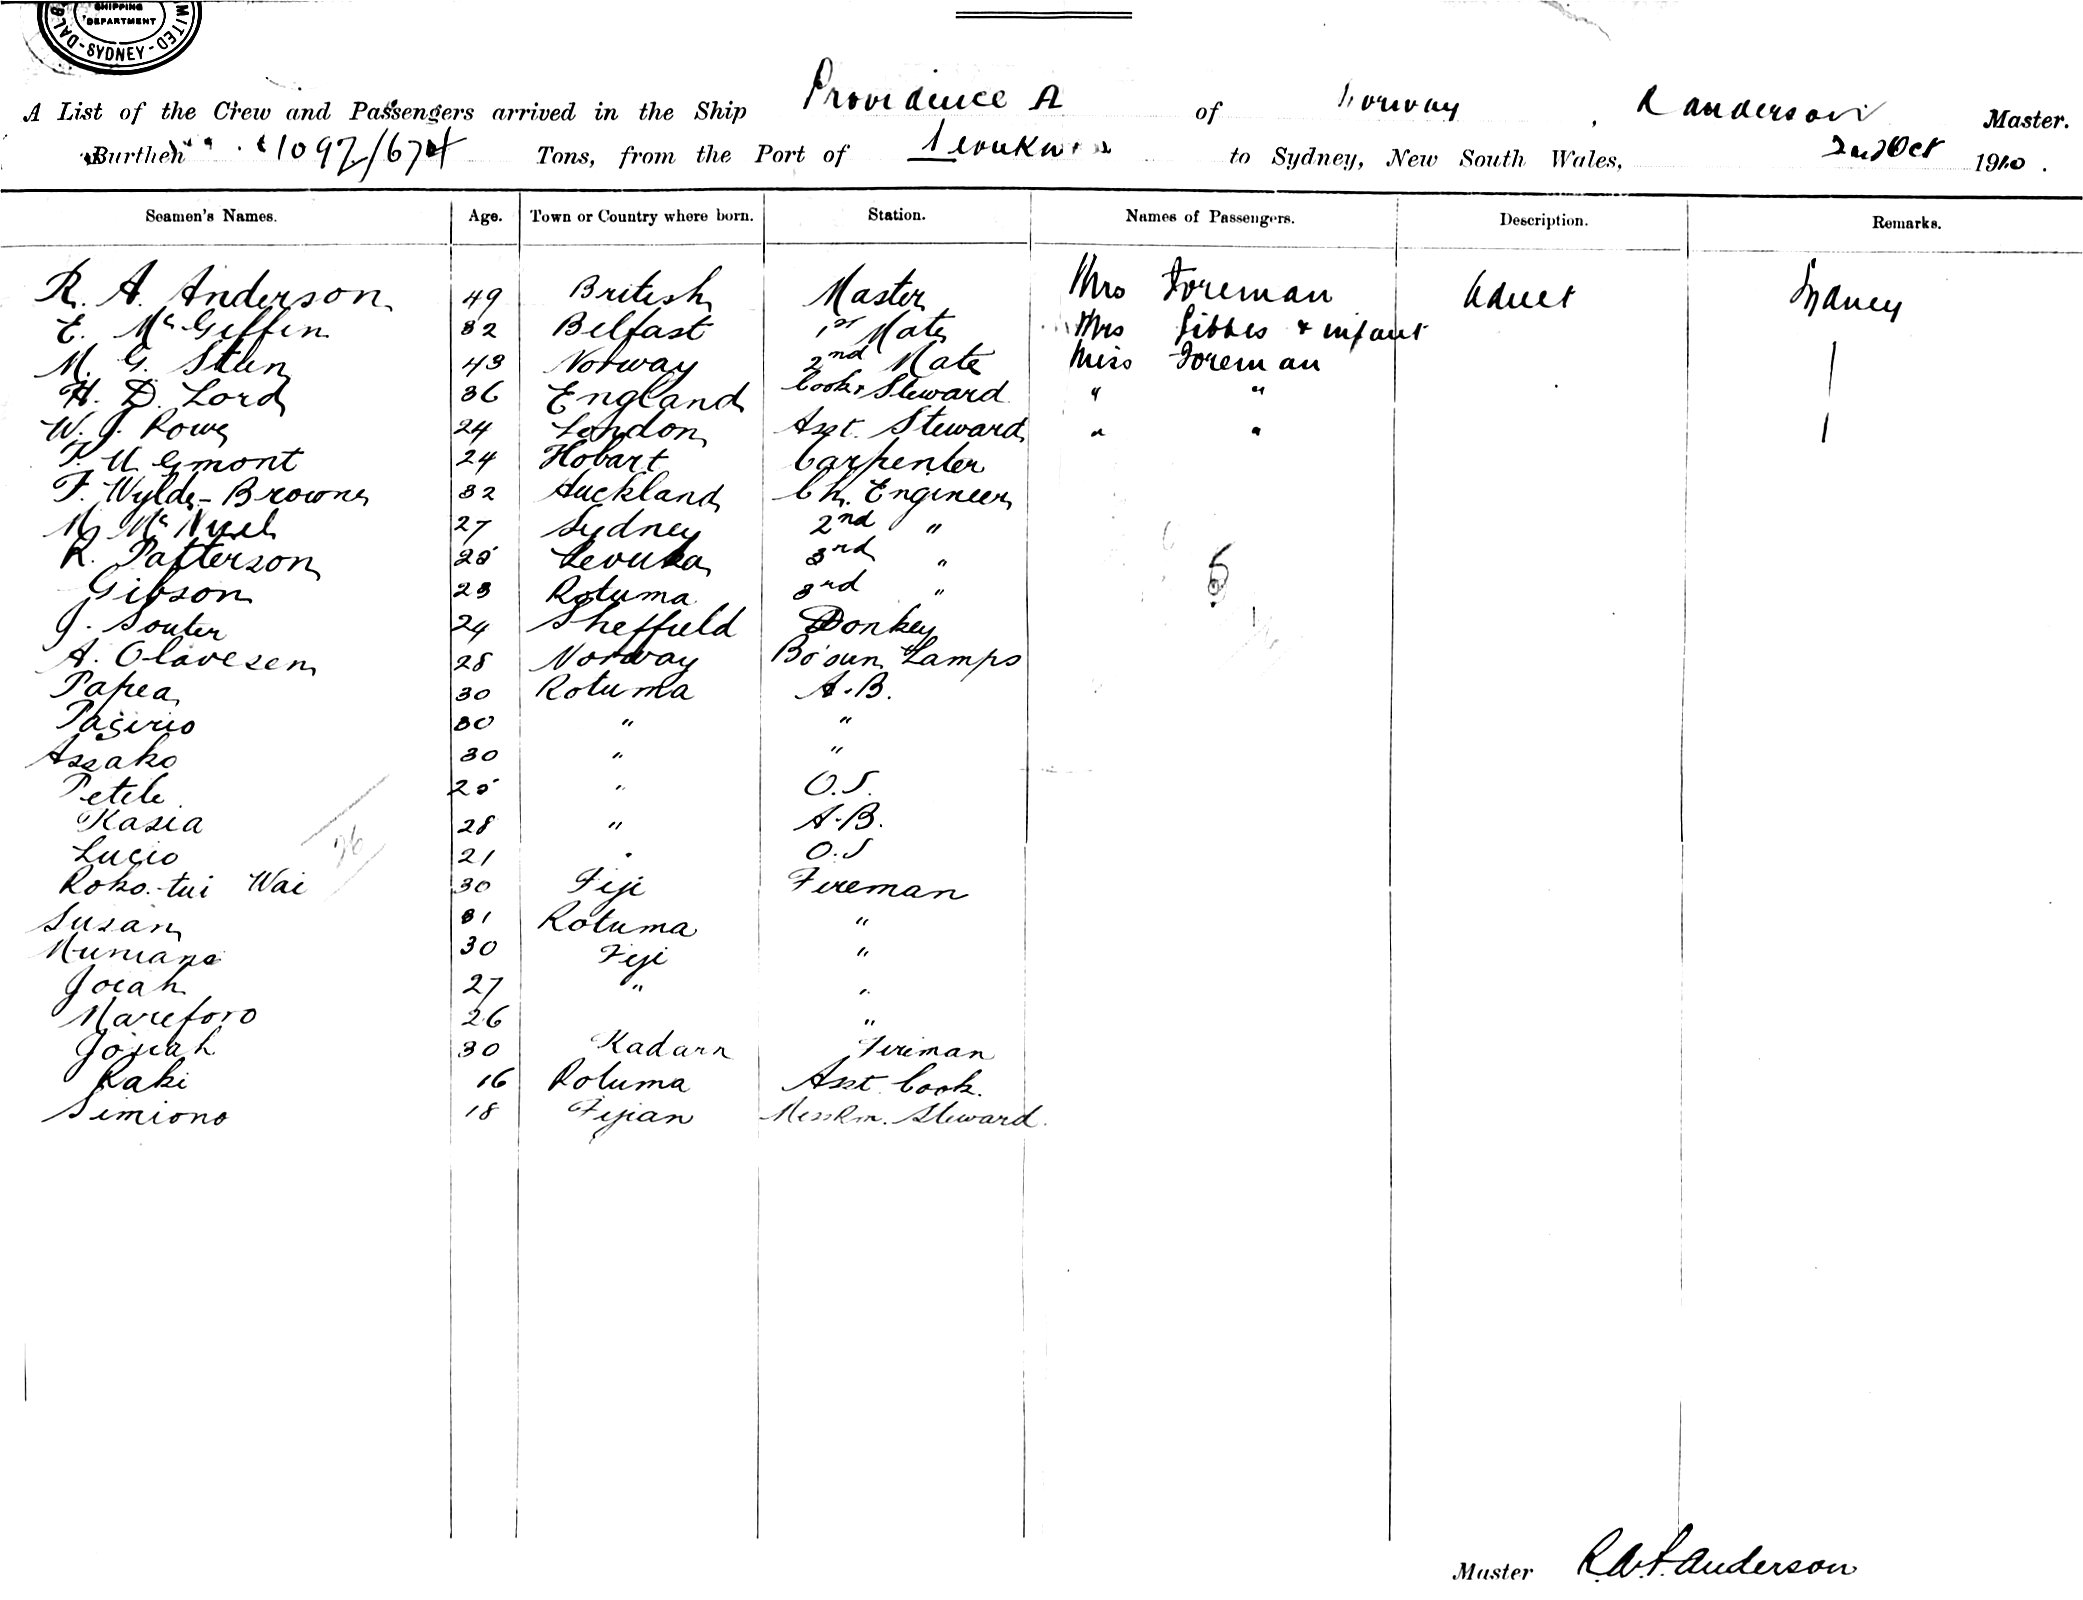 SHIPPING
DEPARTMENT
SYDNEY
A List of the Crew and Passengers arrived in the Ship Providence A of Norway, R Anderson Master.
Burthen 1092/674 Tons, from the Port of to Sydney, New South Wales, 2nd Oct 1910.
Seamen's Names. Age. Town or Country where born. Station. Names of Passengers. Description. Remarks.
R. A. Anderson 49 British Master Mrs Foreman Adult Sydney
E. McGiffin 32 Belfast 1st Mate Mrs Gibbes & infant
M. G. Steen 43 Norway 2nd Mate Miss Foreman
H. D. Lord 36 England Cook & Steward " "
W. J. Rowe 24 London Asst. Steward " "
24 Hobart Carpenter
F. Wylde-Browne 32 Auckland Ch. Engineer
M. 27 Sydney 2nd "
R. Patterson 25 Levuka 3rd "
Gibson 23 Rotuma 3rd "
J. Souter 24 Sheffield Donkey
A. Olavesen 28 Norway Bo'sun Lamps
Papea 30 Rotuma A.B.
Pasirio 30 " "
Assako 30 " "
Petele 25 " O.S.
Kasia 28 " A.B.
Lucio 21 " O.S
Roko-tui Wai 30 Fiji Fireman
Susan 31 Rotuma "
30 Fiji "
Joeah 27 " "
Mareforo 26 "
Josiah 30 Fireman
Raki 16 Rotuma Asst. Cook.
Simiono 18 Fijian Messrm. Steward.
26
Master R.A.P. Anderson